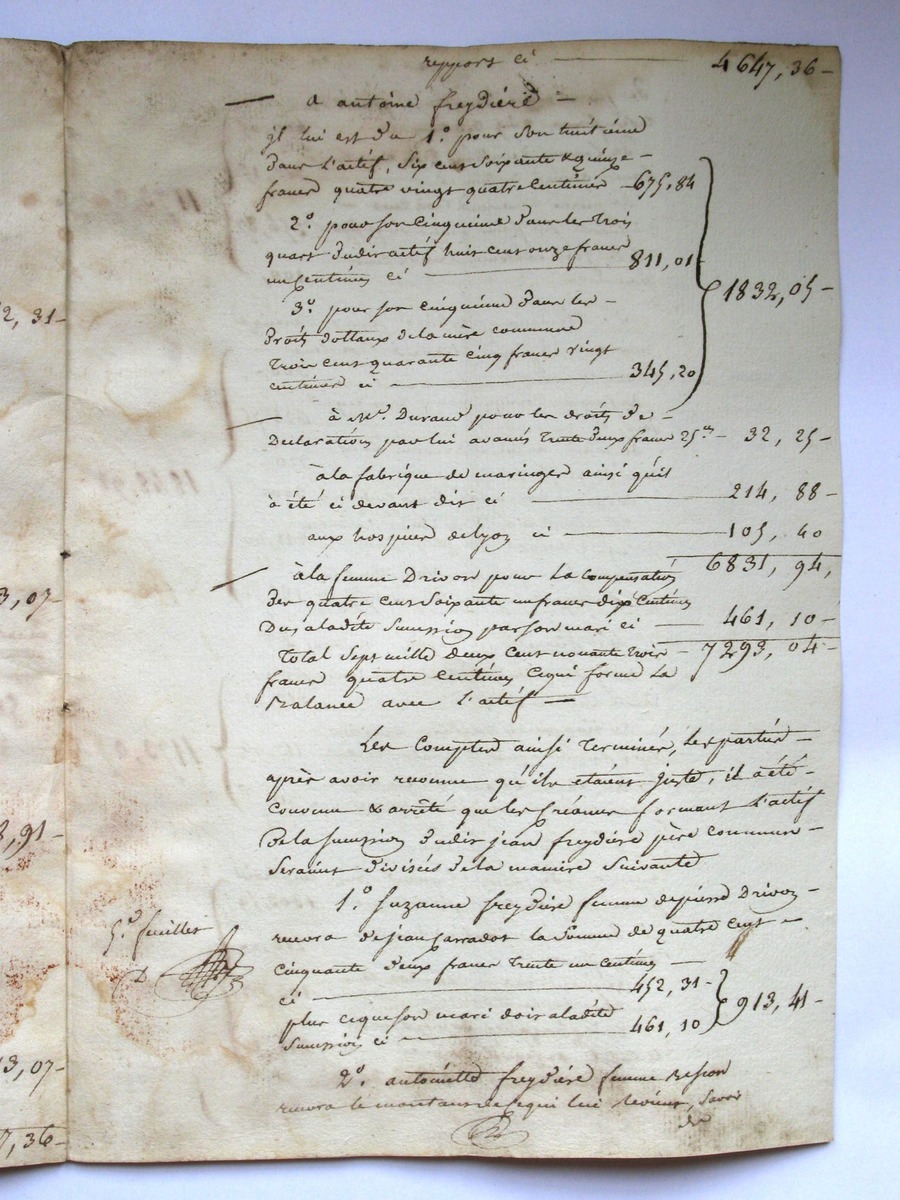 2, 31-
3, 07-
8, 91-
13, 07-
7, 36-
report ci 4647, 36-
a antoine freydiére
jl lui est du 1.º pour son huitième
dans l'actif, Six cent Soixante & quinze
francs quatre vingt quatre Centimes 675,84
2º pour son cinquieme dans les trois
quart dudit actif huit cent onze francs
un Centimes ci 811,01-
1832,05-
3º pour son cinquième dans les
droits dottaux de la mère commune
trois cent quarante cinq francs vingt
centimes ci 345,20
à Mr. Durand pour les droits de
Declaration par lui avancés trente deux francs 25 cs 32, 25-
à la fabrique de maringes ainsi qu'il
à été ci devant dit ci 214, 88-
aux hospices de lyon ci 105, 40
6831, 94,
à la femme Drivon pour la compensation
des quatre cent Soixante un francs dix Centimes
Dus aladite Succession par son mari ci 461, 10-
Total Sept mille deux Cent nonante trois 7293, 04-
francs quatre Centimes Ce qui forme la
Balance avec l'actif
Les Comptes ainsi Terminés, les parties
après avoir reconnu qu'ils etaient juste, il a été
convenu & arrêté que les créances formant l'actif
de la Succession dudit jean freydiére père commun
Seraient divisées de la maniere Suivante
1.º Suzanne freydiére femme de pierre Drivon
recevra de jean la Somme de quatre cent
Cinquante deux francs Trente un Centimes
ci 452,31-
913,41-
plus ce que son mari doit a ladite
Succession ci 461,10
5e. feuillet
D
2º. antoinette freydiére femme
recevra le montant de ce qui lui revient, Savoir
de